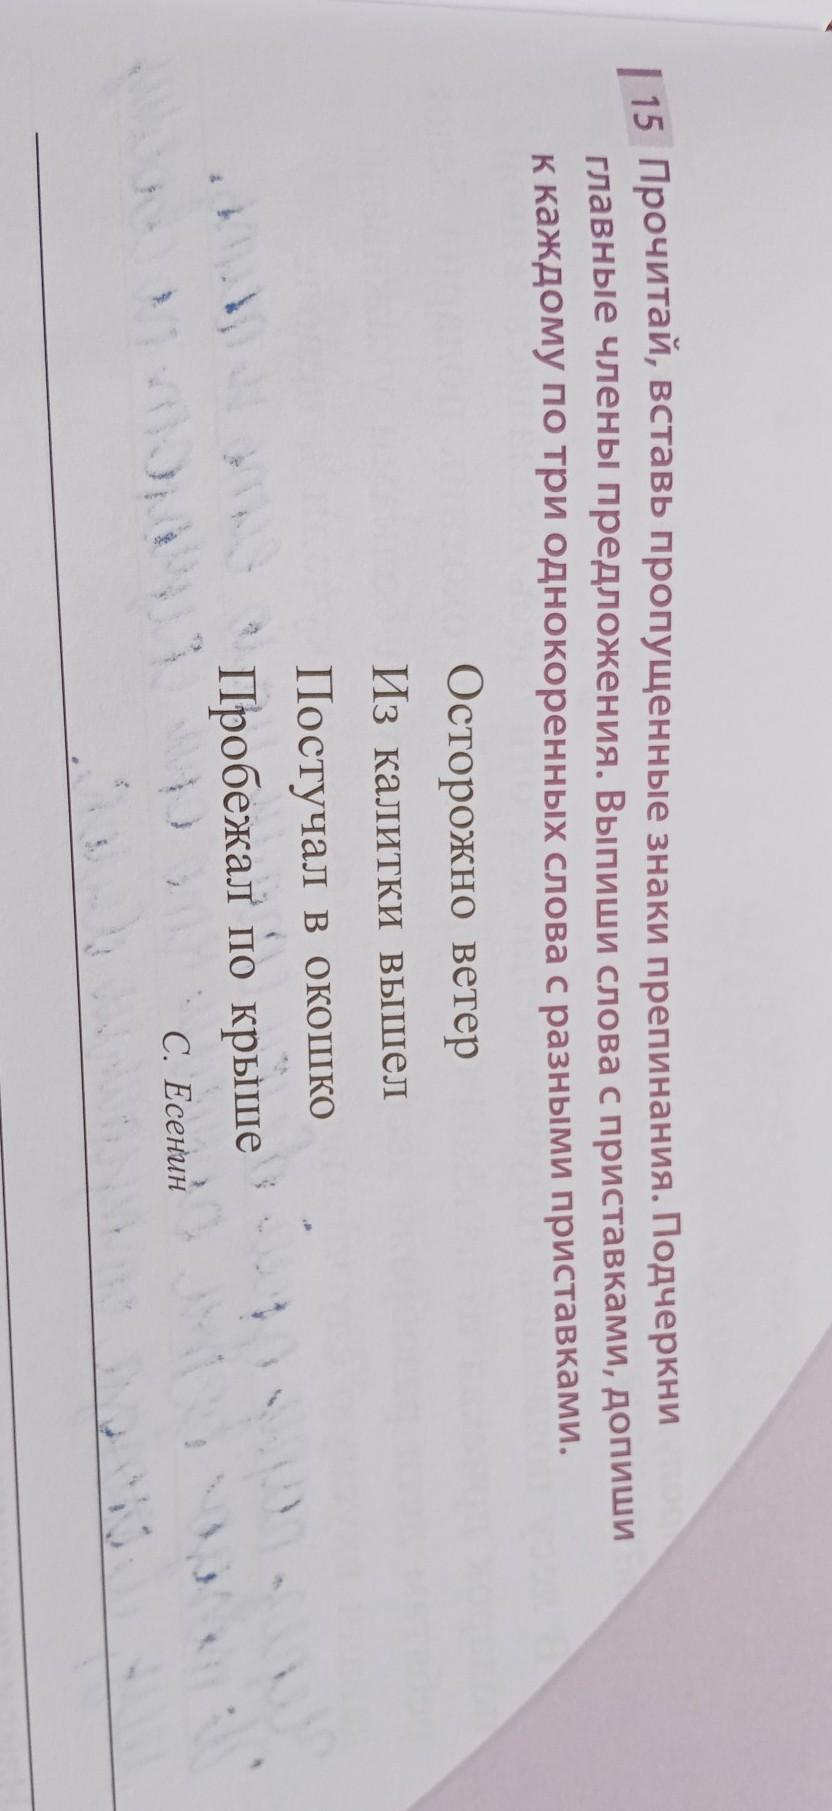 15 Прочитай, вставь пропущенные знаки препинания. Подчеркни
главные члены предложения. Выпиши слова с приставками, допиши
к каждому по три однокоренных слова с разными приставками.
Осторожно ветер
Из калитки вышел
Постучал в окошко
Пробежал по крыше
С. Есенин